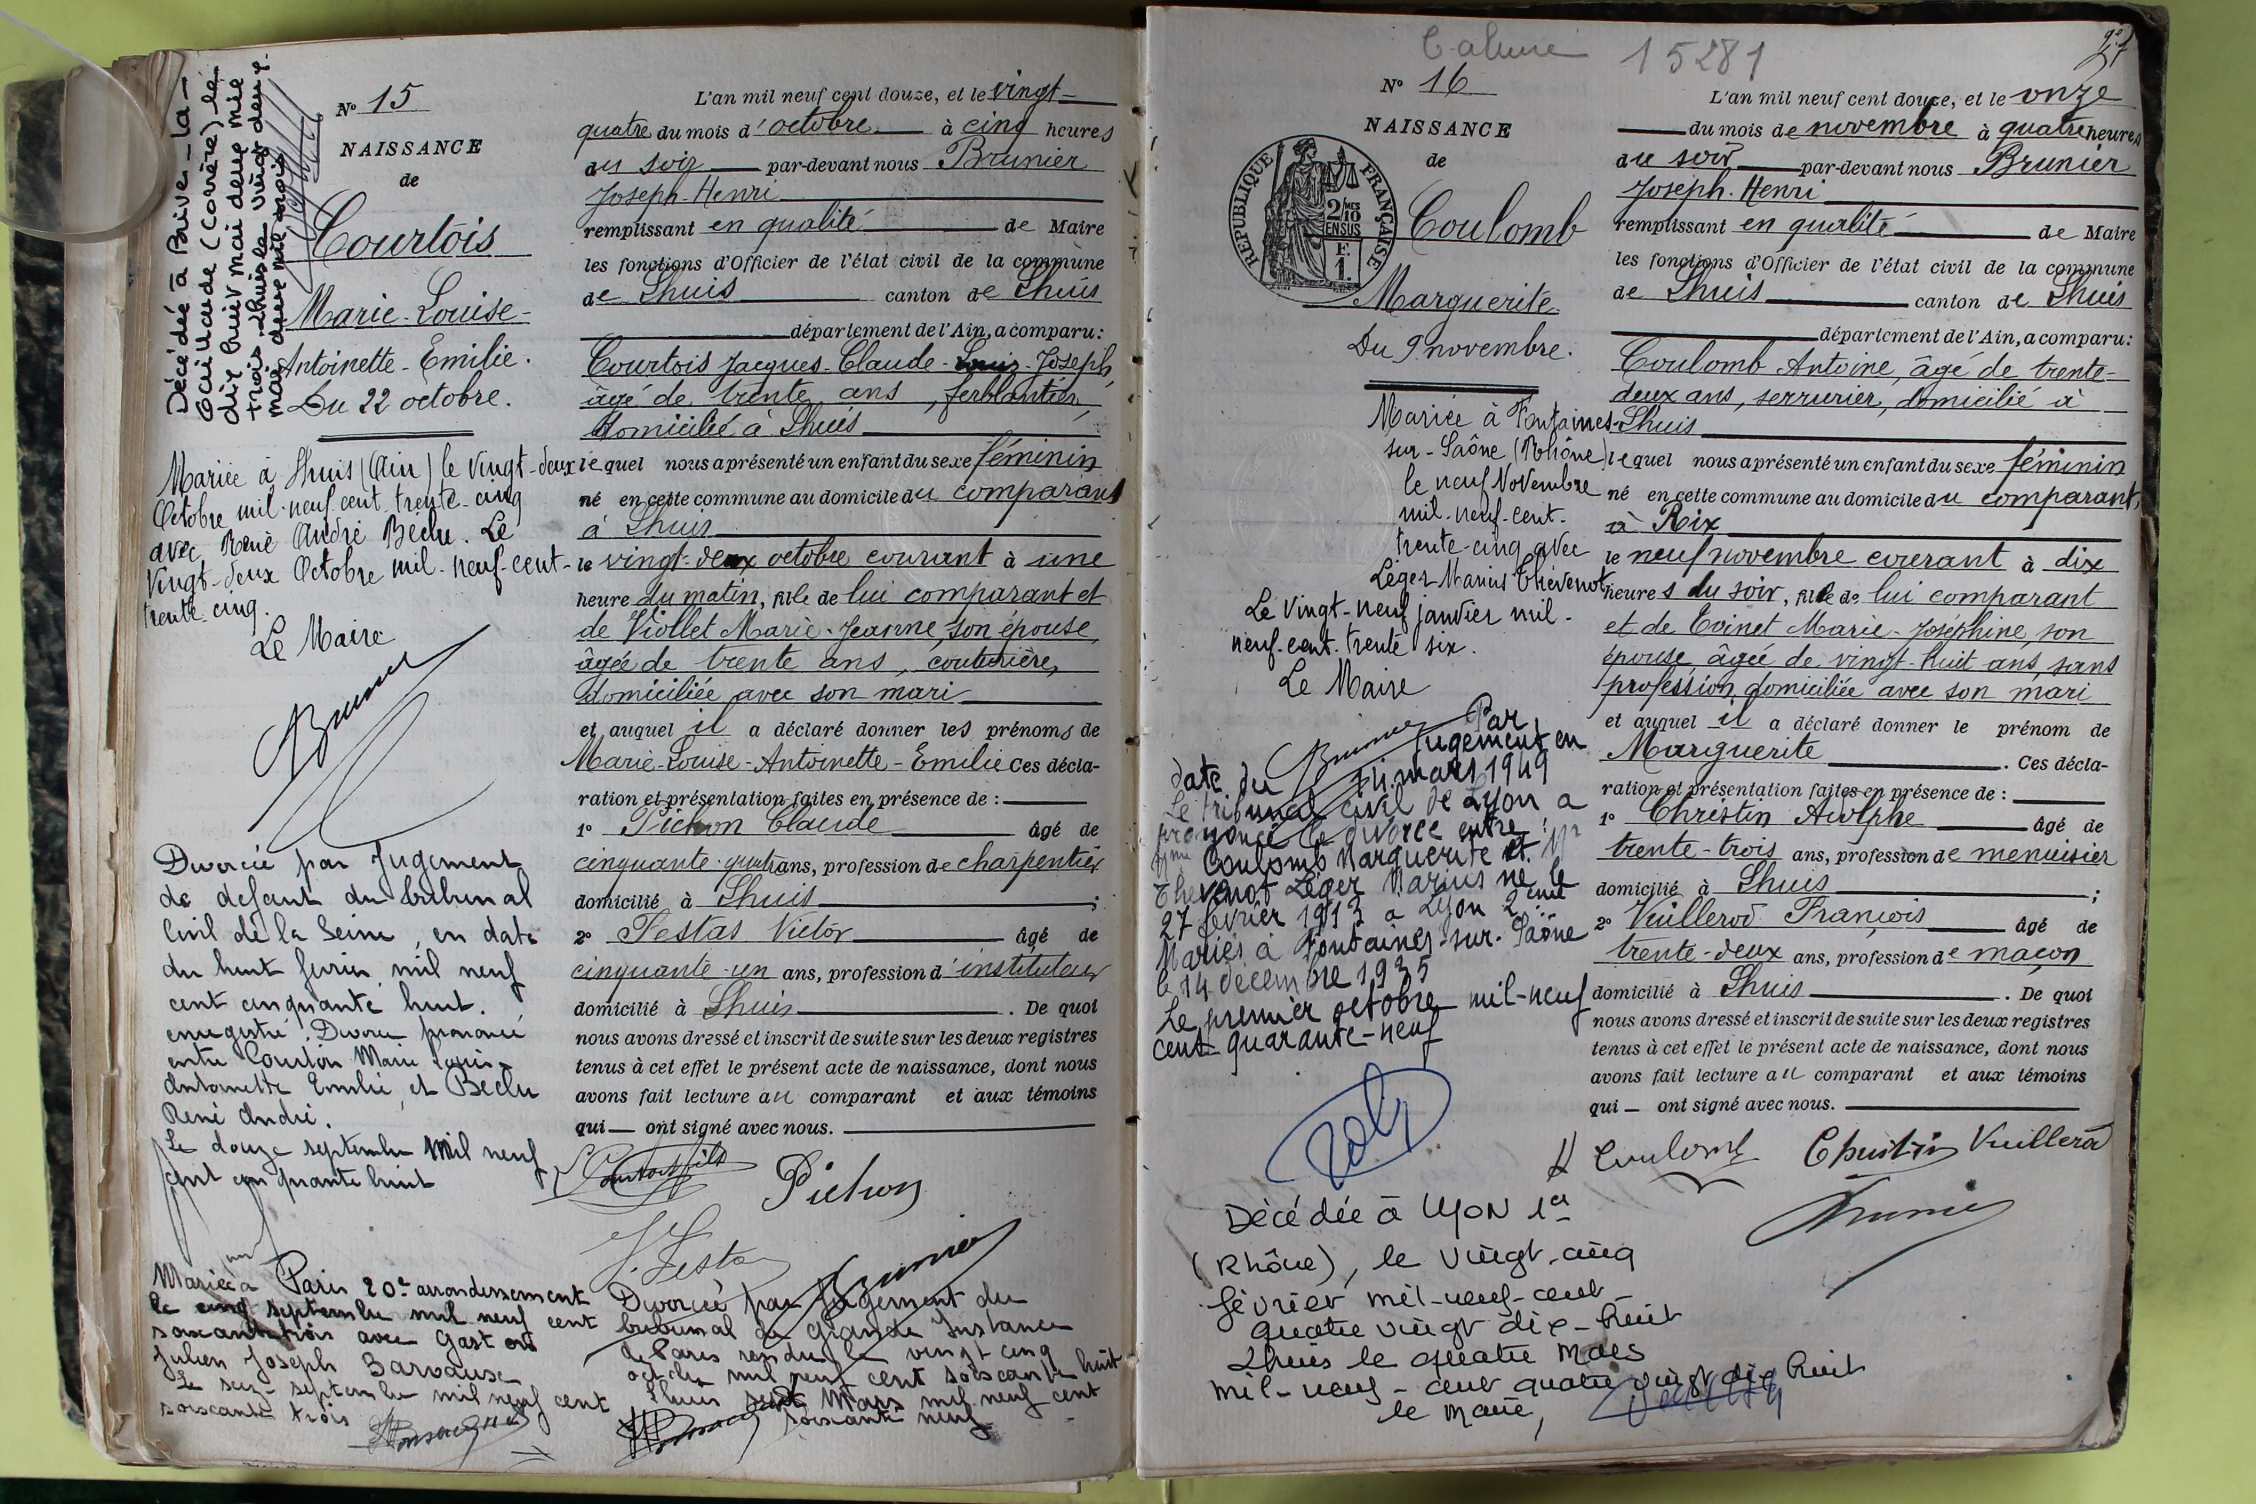 Décédée à Brive-la-
Gaillarde (Corrèze) le
dix huit mai deux mil
trois. Lhuis le vingt deux
mai deux mil trois
N° 15
NAISSANCE
de
Courtois
Marie-Louise-
Antoinette-Emilie.
Du 22 octobre.
Mariée à Lhuis (Ain) le Vingt-deux
Octobre mil-neuf-cent-trente-cinq
avec René André Beclu. Le
Vingt-deux Octobre mil-neuf-cent-
trente-cinq.
Le Maire
Brunier
Divorcée par Jugement
de defaut du tribunal
Civil de la Seine, en date
du huit fevrier mil neuf
cent cinquante huit.
enregistré. Divorce prononcé
entre Courtois Marie Louise
Antoinette Emilie, et Beclu
René André.
Le douze septembre Mil neuf
cent cinquante huit
Mariée à Paris 20e arrondissement
le cinq septembre mil neuf cent
soixante trois avec Gaston
Julien Joseph Barvause
Le seize septembre mil neuf cent
soixante trois
L'an mil neuf cent douze, et le vingt-
quatre du mois d'octobre à cinq heures
du soir par-devant nous Brunier
Joseph-Henri
remplissant en qualité de Maire
les fonctions d'Officier de l'état civil de la commune
de Lhuis canton de Lhuis
département de l'Ain, a comparu:
Courtois Jacques-Claude-Louis-Joseph,
âgé de trente ans, ferblantier,
domicilié à Lhuis
lequel nous a présenté un enfant du sexe féminin
né en cette commune au domicile du comparant
à Lhuis
le vingt-deux octobre courant à une
heure du matin, fille de lui comparant et
de Viollet Marie-Jeanne, son épouse,
âgée de trente ans, couturière,
domiciliée avec son mari
et auquel il a déclaré donner les prénoms de
Marie-Louise-Antoinette-Emilie Ces décla-
ration et présentation faites en présence de :
1° Pichon Claude âgé de
cinquante-quatre ans, profession de charpentier
domicilié à Lhuis ;
2° Festas Victor âgé de
cinquante-un ans, profession d'instituteur
domicilié à Lhuis. De quoi
nous avons dressé et inscrit de suite sur les deux registres
tenus à cet effet le présent acte de naissance, dont nous
avons fait lecture au comparant et aux témoins
qui — ont signé avec nous.
Courtois fils
Pichon
V. Festas
Brunier
Divorcée par Jugement du
tribunal de Grande Instance
de Paris rendu le vingt cinq
octobre mil neuf cent soixante huit
Lhuis sept Mars mil neuf cent
soixante neuf
15281
N° 16
NAISSANCE
de
RÉPUBLIQUE FRANÇAISE
2/10 EN SUS
F.
1.
Coulomb
Marguerite
Du 9 novembre.
Mariée à Fontaines-
sur-Saône (Rhône)
le neuf Novembre
mil-neuf-cent-
trente-cinq avec
Léger Marius Thévenot
Le Vingt-neuf janvier mil-
neuf-cent-trente six.
Le Maire
Brunier
Par
jugement en
date du 14 mars 1949
Le tribunal civil de Lyon a
prononcé le divorce entre :
Coulomb Marguerite et Mr
Thevenot Léger Marius né le
27 février 1913 à Lyon 2eme
Mariés à Fontaines-sur-Saône
le 14 décembre 1935
Le premier octobre mil-neuf
cent-quarante-neuf
Décédée à LYON 1er
(Rhône), le vingt-cinq
février mil-neuf-cent-
quatre vingt dix-huit
Lhuis le quatre Mars
mil-neuf-cent quatre vingt dix huit
le Maire,
L'an mil neuf cent douze, et le onze
du mois de novembre à quatre heures
du soir par-devant nous Brunier
Joseph-Henri
remplissant en qualité de Maire
les fonctions d'Officier de l'état civil de la commune
de Lhuis canton de Lhuis
département de l'Ain, a comparu:
Coulomb Antoine, âgé de trente-
deux ans, serrurier, domicilié à
Lhuis
lequel nous a présenté un enfant du sexe féminin
né en cette commune au domicile du comparant,
à Rix
le neuf novembre courant à dix
heures du soir, fille de lui comparant
et de Toinet Marie-Joséphine, son
épouse, âgée de vingt-huit ans, sans
profession, domiciliée avec son mari
et auquel il a déclaré donner le prénom de
Marguerite. Ces décla-
ration et présentation faites en présence de :
1° Christin Adolphe âgé de
trente-trois ans, profession de menuisier
domicilié à Lhuis ;
2° Vuillerod François âgé de
trente-deux ans, profession de maçon
domicilié à Lhuis. De quoi
nous avons dressé et inscrit de suite sur les deux registres
tenus à cet effet le présent acte de naissance, dont nous
avons fait lecture au comparant et aux témoins
qui — ont signé avec nous.
A Coulomb Christin Vuillerod
Brunier